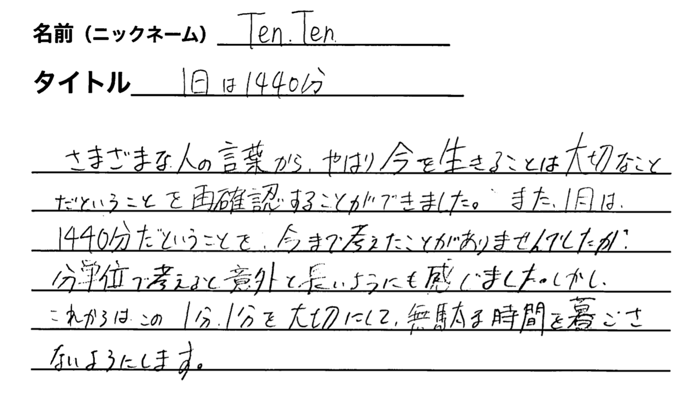 名前（ニックネーム） Ten.Ten
タイトル 1日は1440分
さまざまな人の言葉から、やはり今を生きることは大切なこと
だということを再確認することができました。また、1日は、
1440分だということを、今まで考えたことがありませんでしたが、
分単位で考えると意外と長いようにも感じました。しかし、
これからはこの1分、1分を大切にして、無駄な時間を暮ごさ
ないようにします。